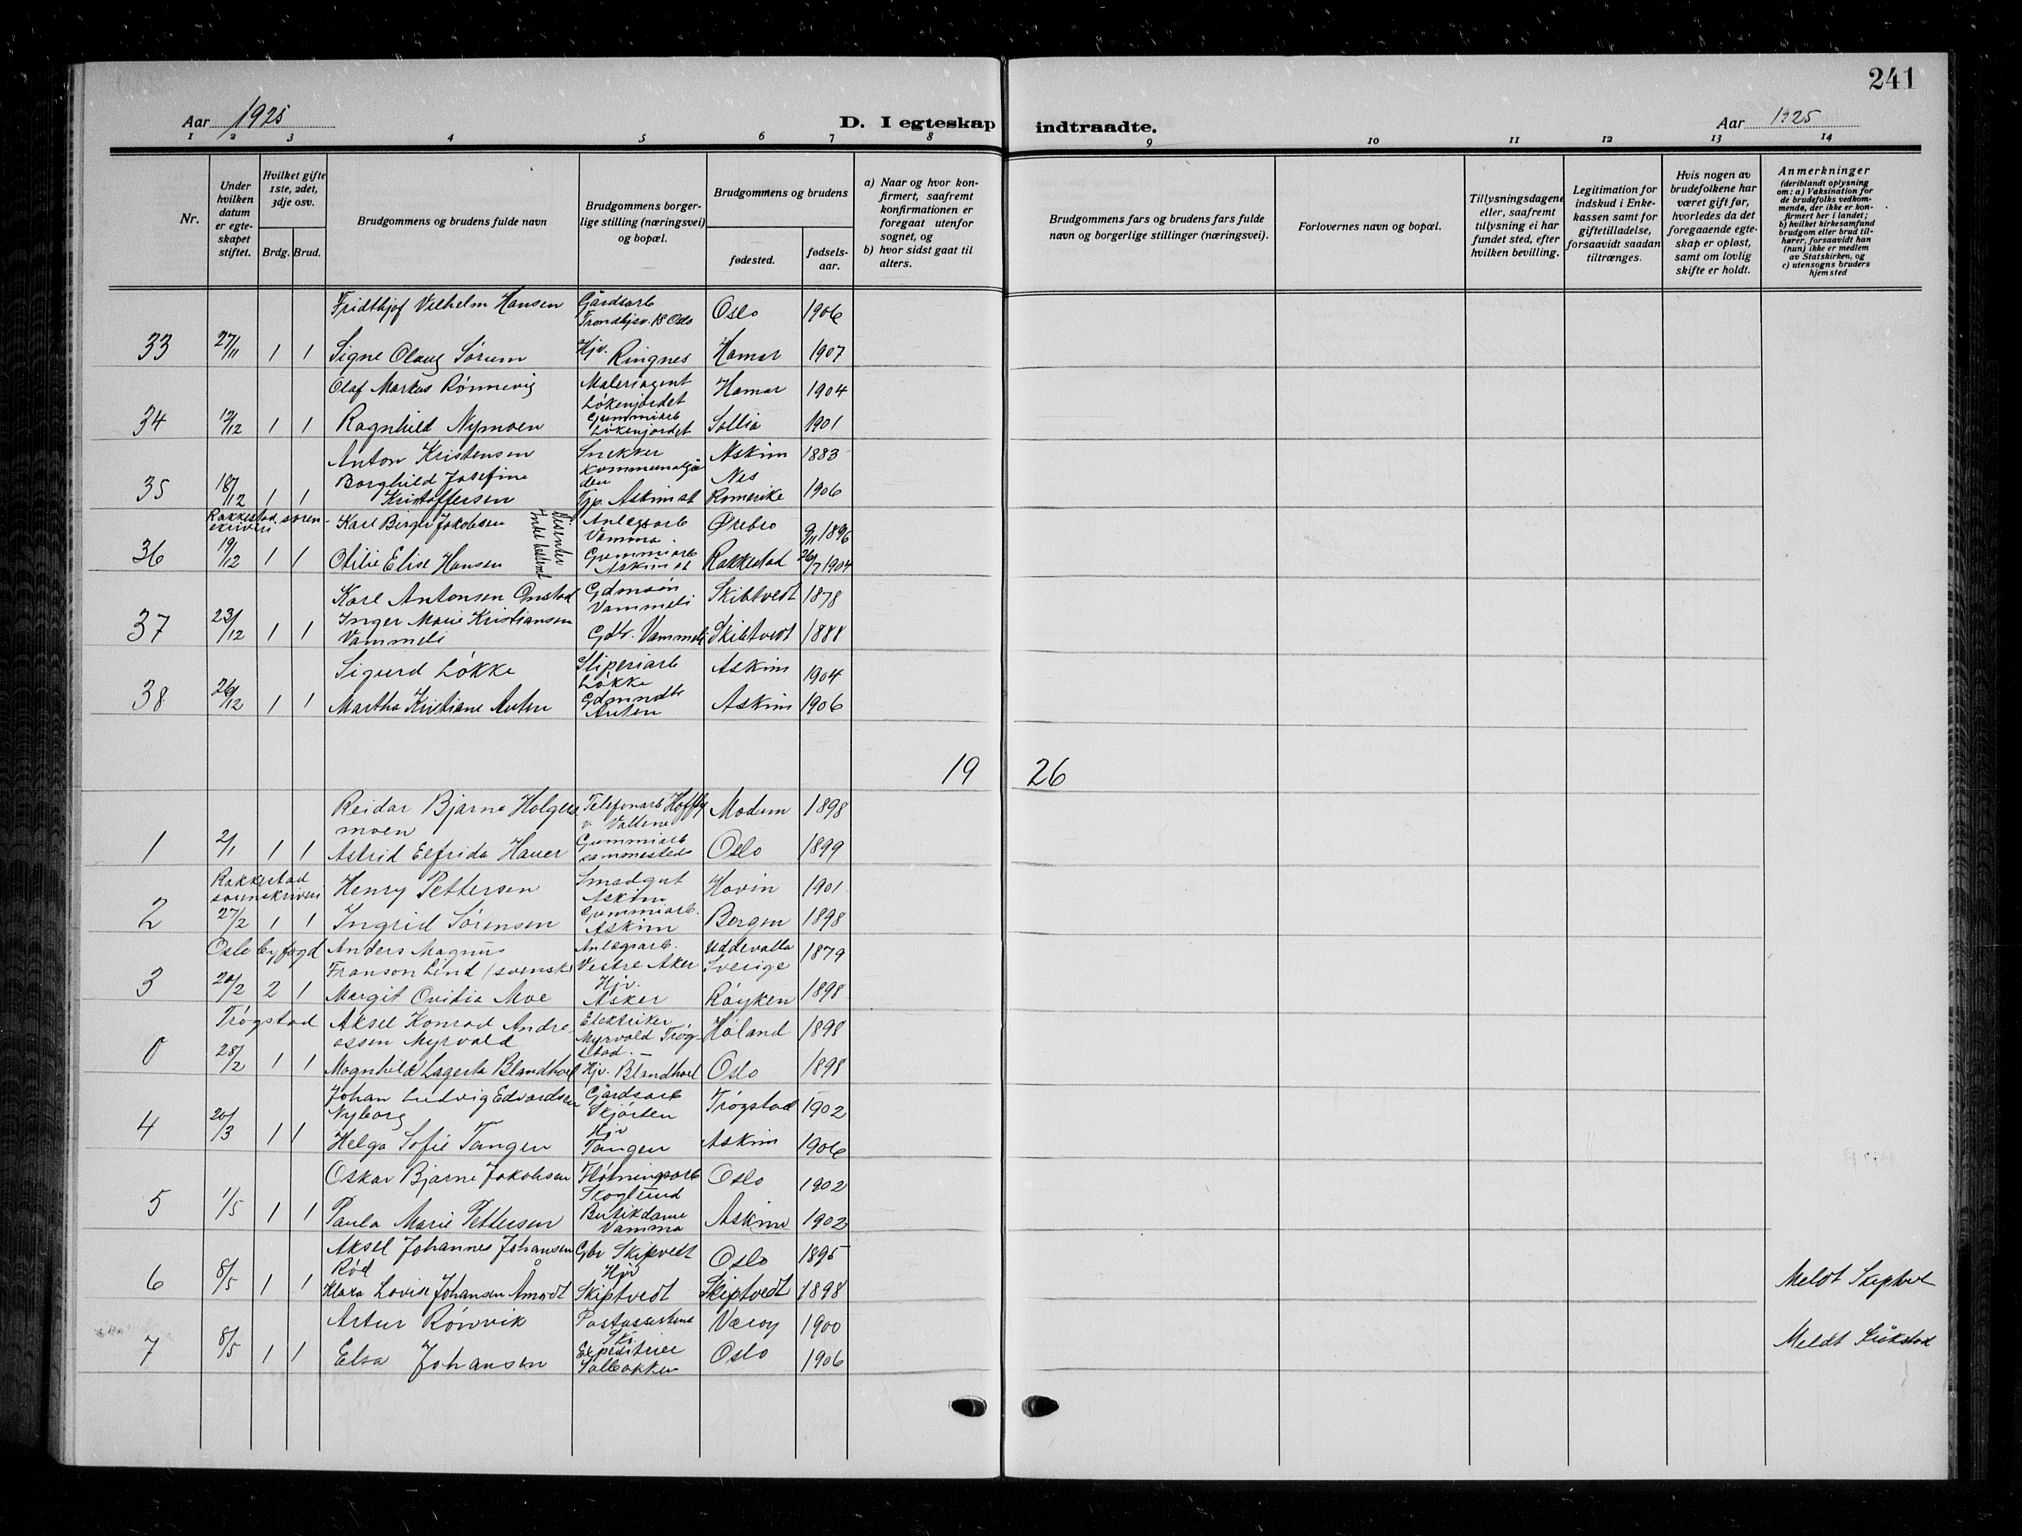 241
Aar 1925
D. I egteskap indtraadte.
Aar 1925
1 2 3 4 5 6 7 8 9 10 11 12 13 14
Nr.
Under hvilken datum er egteskapet stiftet.
Hvilket gifte 1ste, 2det, 3dje osv.
Brdg. Brud.
Brudgommens og brudens fulde navn
Brudgommens borgerlige stilling (næringsvei) og bopæl.
Brudgommens og brudens
fødested.
fødselsaar.
a) Naar og hvor konfirmert, saafremt konfirmationen er foregaat utenfor sognet, og
b) hvor sidst gaat til alters.
Brudgommens fars og brudens fars fulde navn og borgerlige stillinger (næringsvei).
Forlovernes navn og bopæl.
Tillysningsdagene eller, saafremt tillysning ei har fundet sted, efter hvilken bevilling.
Legitimation for indskud i Enkekassen samt for giftetilladelse, forsaavidt saadan tiltrænges.
Hvis nogen av brudefolkene har været gift før, hvorledes da det foregaaende egteskap er opløst, samt om lovlig skifte er holdt.
Anmerkninger
(deriblandt oplysning om: a) Vaksination for de brudefolks vedkommende, der ikke er konfirmert her i landet; b) hvilket kirkesamfund brudgom eller brud tilhører, forsaavidt han (hun) ikke er medlem av Statskirken, og c) utensogns bruders hjemsted
Fridthjof Vilhelm Hansen Gårdsarb Trondhjsv. 18 Oslo Oslo 1906
33 27/11 1 1 Signe Olaug Sørum Hjv. Ringnes Hamar 1907
Olaf Markus Rønnevig Maleriagent Løkenjordet Hamar 1904
34 12/12 1 1 Ragnhild Nymoen Gummiarb Løkenjordet Sollia 1901
Anton Kristensen Snekker Kommunalgården Askim 1883
35 18/12 1 1 Borghild Josefine Kristoffersen Tjp. Askim st Nes Romerike 1906
Rakkestad sorenskriveri Karl Berger Jakobsen Disenter Anlegsarb Vamma. Ørebro 9/11 1896
36 19/12 1 1 Otilie Elise Hansen Gummiarb Askim st Rakkestad 26/7 1904
Karl Antonsen Onstad Gdmsøn Vammeli Skibtvedt 1878
37 23/12 1 1 Inger Marie Kristiansen Vammeli Gdt. Vammeli Skibtvedt 1888
Sigurd Løkke Sliperiarb Løkke Askim 1904
38 26/12 1 1 Martha Kristiane Auten Gdmndt Auten Askim 1906
19 26
Reidar Bjarne Holgersmoen Telefonarb Hoffey v. Vallene Modum 1898
1 2/1 1 1 Astrid Elfrida Hauer Gummiarb sammesteds Oslo 1899
Rakkestad sorenskriveri Henry Pettersen Smedgut Askim Hovin 1901
2 27/2 1 1 Ingrid Sørensen Gummiarb. Askim Bergen 1898
Oslo byfogd Anders Magnus Franson Lind (svenske Anlegsarb. Vestre Aker Uddevalla Sverige 1879
3 20/2 2 1 Margit Ovidia Moe Hjv. Asker Røyken 1898
Trøgstad Aksel Konrad Andreassen Myrvold Elektriker Myrvold Trøgstad. Høland 1898
0 28/2 1 1 Magnhild Lagerta Blandhoel Hjv. Blandhoel Oslo 1898
Johan Ludvig Edvardsen Nyborg Gårdsarb Skjørten Trøgstad 1902
4 20/3 1 1 Helga Sofie Tangen Hjv Tangen Askim 1906
Oskar Bjarne Jakobsen Fløtningsarb Skoglund Oslo 1902
5 1/5 1 1 Paula Marie Pettersen Butikdame Vamma Askim 1902
Aksel Johannes Johansen Rød Gbr Skiptvedt Oslo 1895
6 8/5 1 1 Klara Lovise Johansen Åmodt Hjv Skiptvedt Skiptvedt 1898 Meldt Skiptvet
Artur Rønvik Postassistent Ski. Værøy 1900
7 8/5 1 1 Elsa Johansen Expeditrise Oslo 1906 Meldt